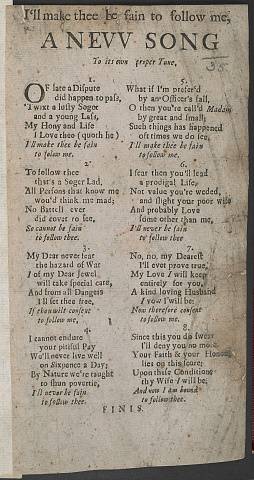 I'll make thee be fain to follow me,
A NEVV SONG
To its own proper Tune,
35
1.
OF late a Dispute
did happen to pass,
'Twixt a lusty Soger
and a young Lass,
My Hony and Life
I Love thee (quoth he)
I'll make thee be fain
to folow me.
2.
To follow thee
that's a Soger Lad,
All Persons that know me
wou'd think me mad;
No Battell ever
did cover to see,
So cannot be fain
to follow thee.
3.
My Dear never fear
the hazard of War
I of my Dear Jewel
will take special care,
And from all Dangers
I'll set thee free,
If thou wilt consent
to follow me,
4.
I cannot endure
your pitiful Pay
We'll never live well
on Sixpence a Day;
By Nature we're taught
to shun povertie,
I'll never be fain
to follow thee.
5.
What if I'm prefer'd
by an Officer's fall,
O then you're call'd Madam
by great and small;
Such things has happened
oftimes we do see,
I'll make thee be fain
to follow me.
6.
I fear then you'll lead
a prodigal Life,
Not value you're weded,
and slight your poor wife
And probably Love
some other than me,
I'll never be fain
to follow thee
7.
No, no, my Dearest
I'll ever prove true,
My Love I will keep
entirely for you,
A kind loving Husband
I vow I will be:
Now therefore consent
to follow me,
8.
Since this you do swear
I'll deny you no more
Your Faith & your Honour
lies on this score;
Upon these Conditions
thy Wife I will be;
And now I am bound
to follow thee.
FINIS.